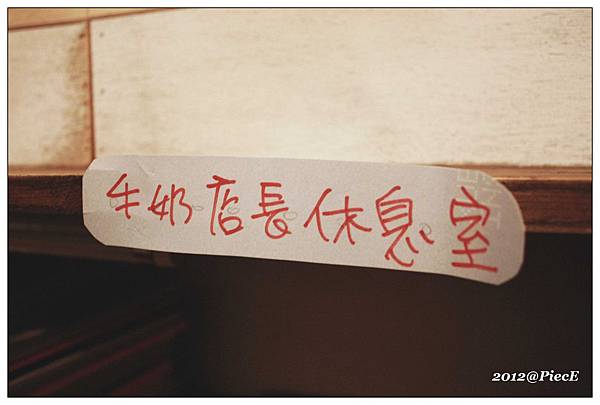 牛奶店長休息室
2012@PiecE